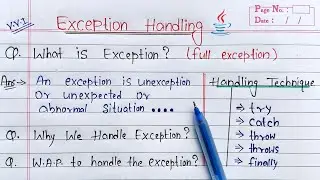 V.V.I
Exception Handling
Page No.:
Date: / /
Q. What is Exception? (full exception)
Ans→ An exception is unexception
or unexpected or
Abnormal Situation ....
Handling Technique
→ try
→ catch
→ throw
→ throws
→ finally
Q. Why We Handle Exception?
Q. W.A.P to handle the exception?